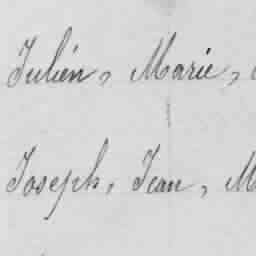 Julien, Marie,
Joseph, Jean, M